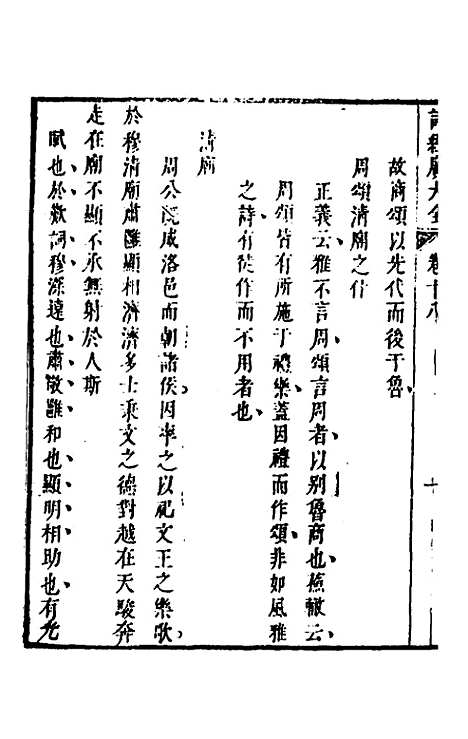 詩經廣大全 卷十八
故商頌以先代而後于魯
周頌清廟之什
正義云雅不言周頌言周者以别魯商也蘇轍云
周頌皆有所施于禮樂蓋因禮而作頌非如風雅
之詩有徒作而不用者也
清廟
周公既成洛邑而朝諸侯因率之以祀文王之樂歌
於穆清廟肅雝顯相濟濟多士秉文之德對越在天駿奔
走在廟不顯不承無射於人斯
賦也於歎詞穆深遠也肅敬雝和也顯明相助也有光